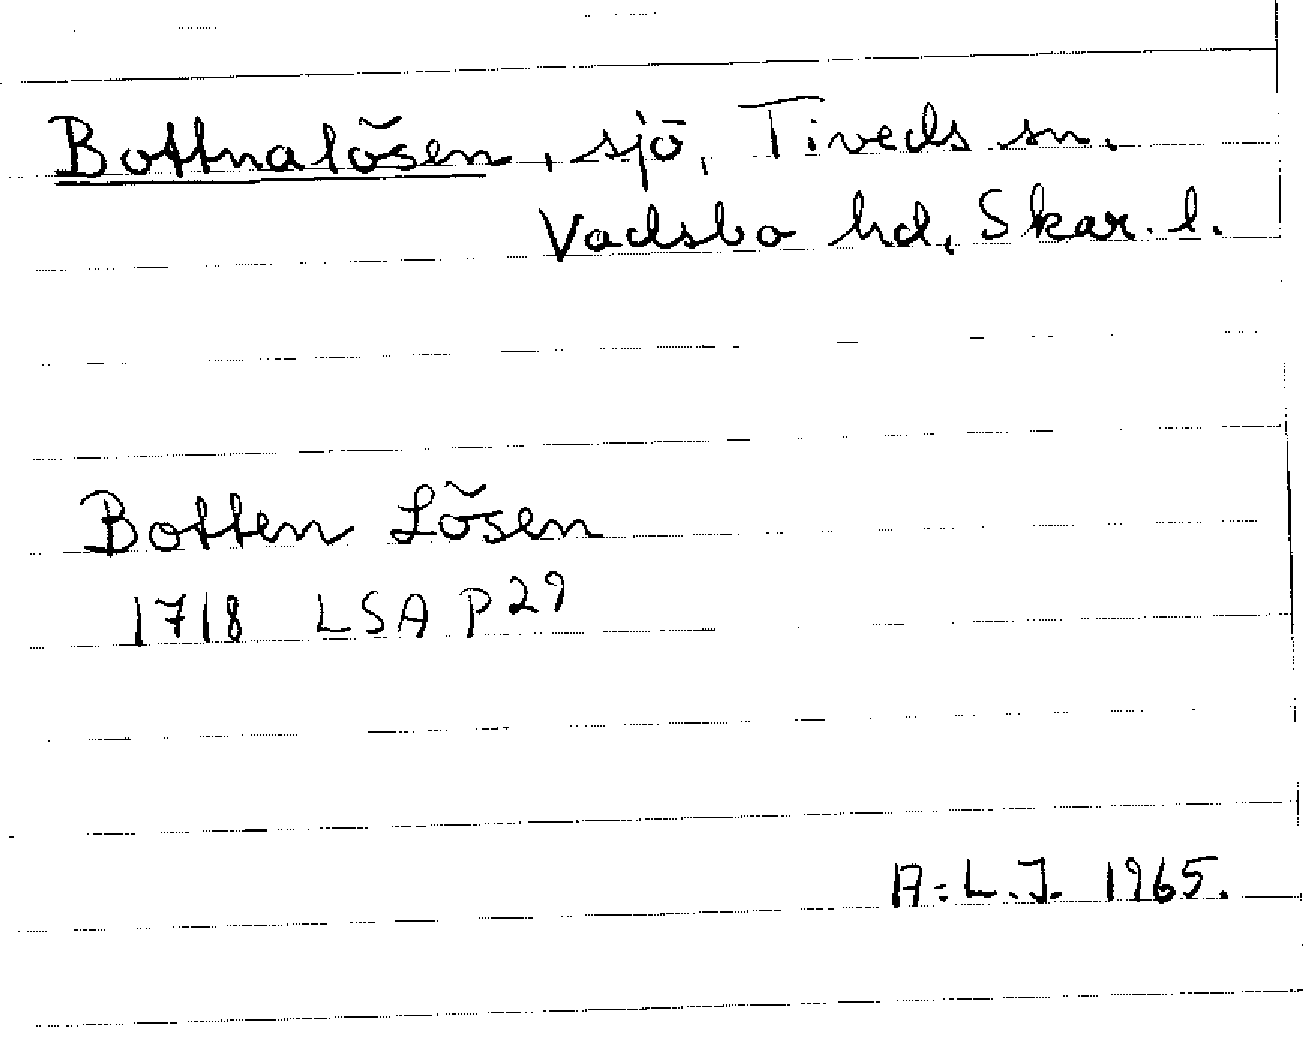 Bottnalösen, sjö, Tiveds sn.
Vadsbo hd, Skar. l.
Botten Lösen
1718 LSA P29
A:L.J. 1965.